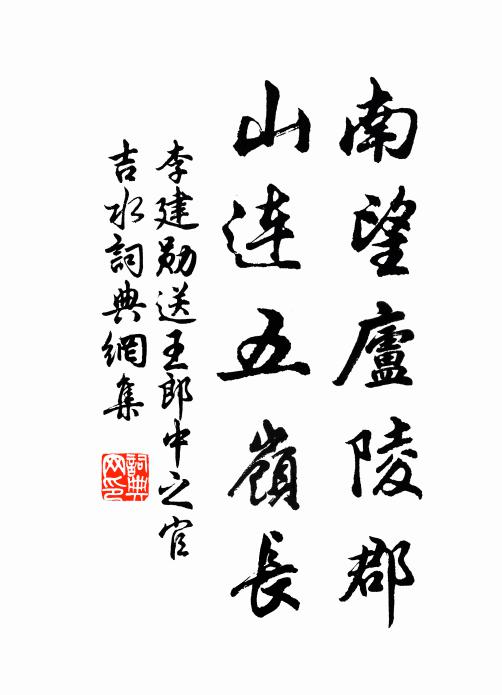 南望廬陵郡
山连五嶺長
李建勋送王郎中之官
吉水詞典網集
詞典网印